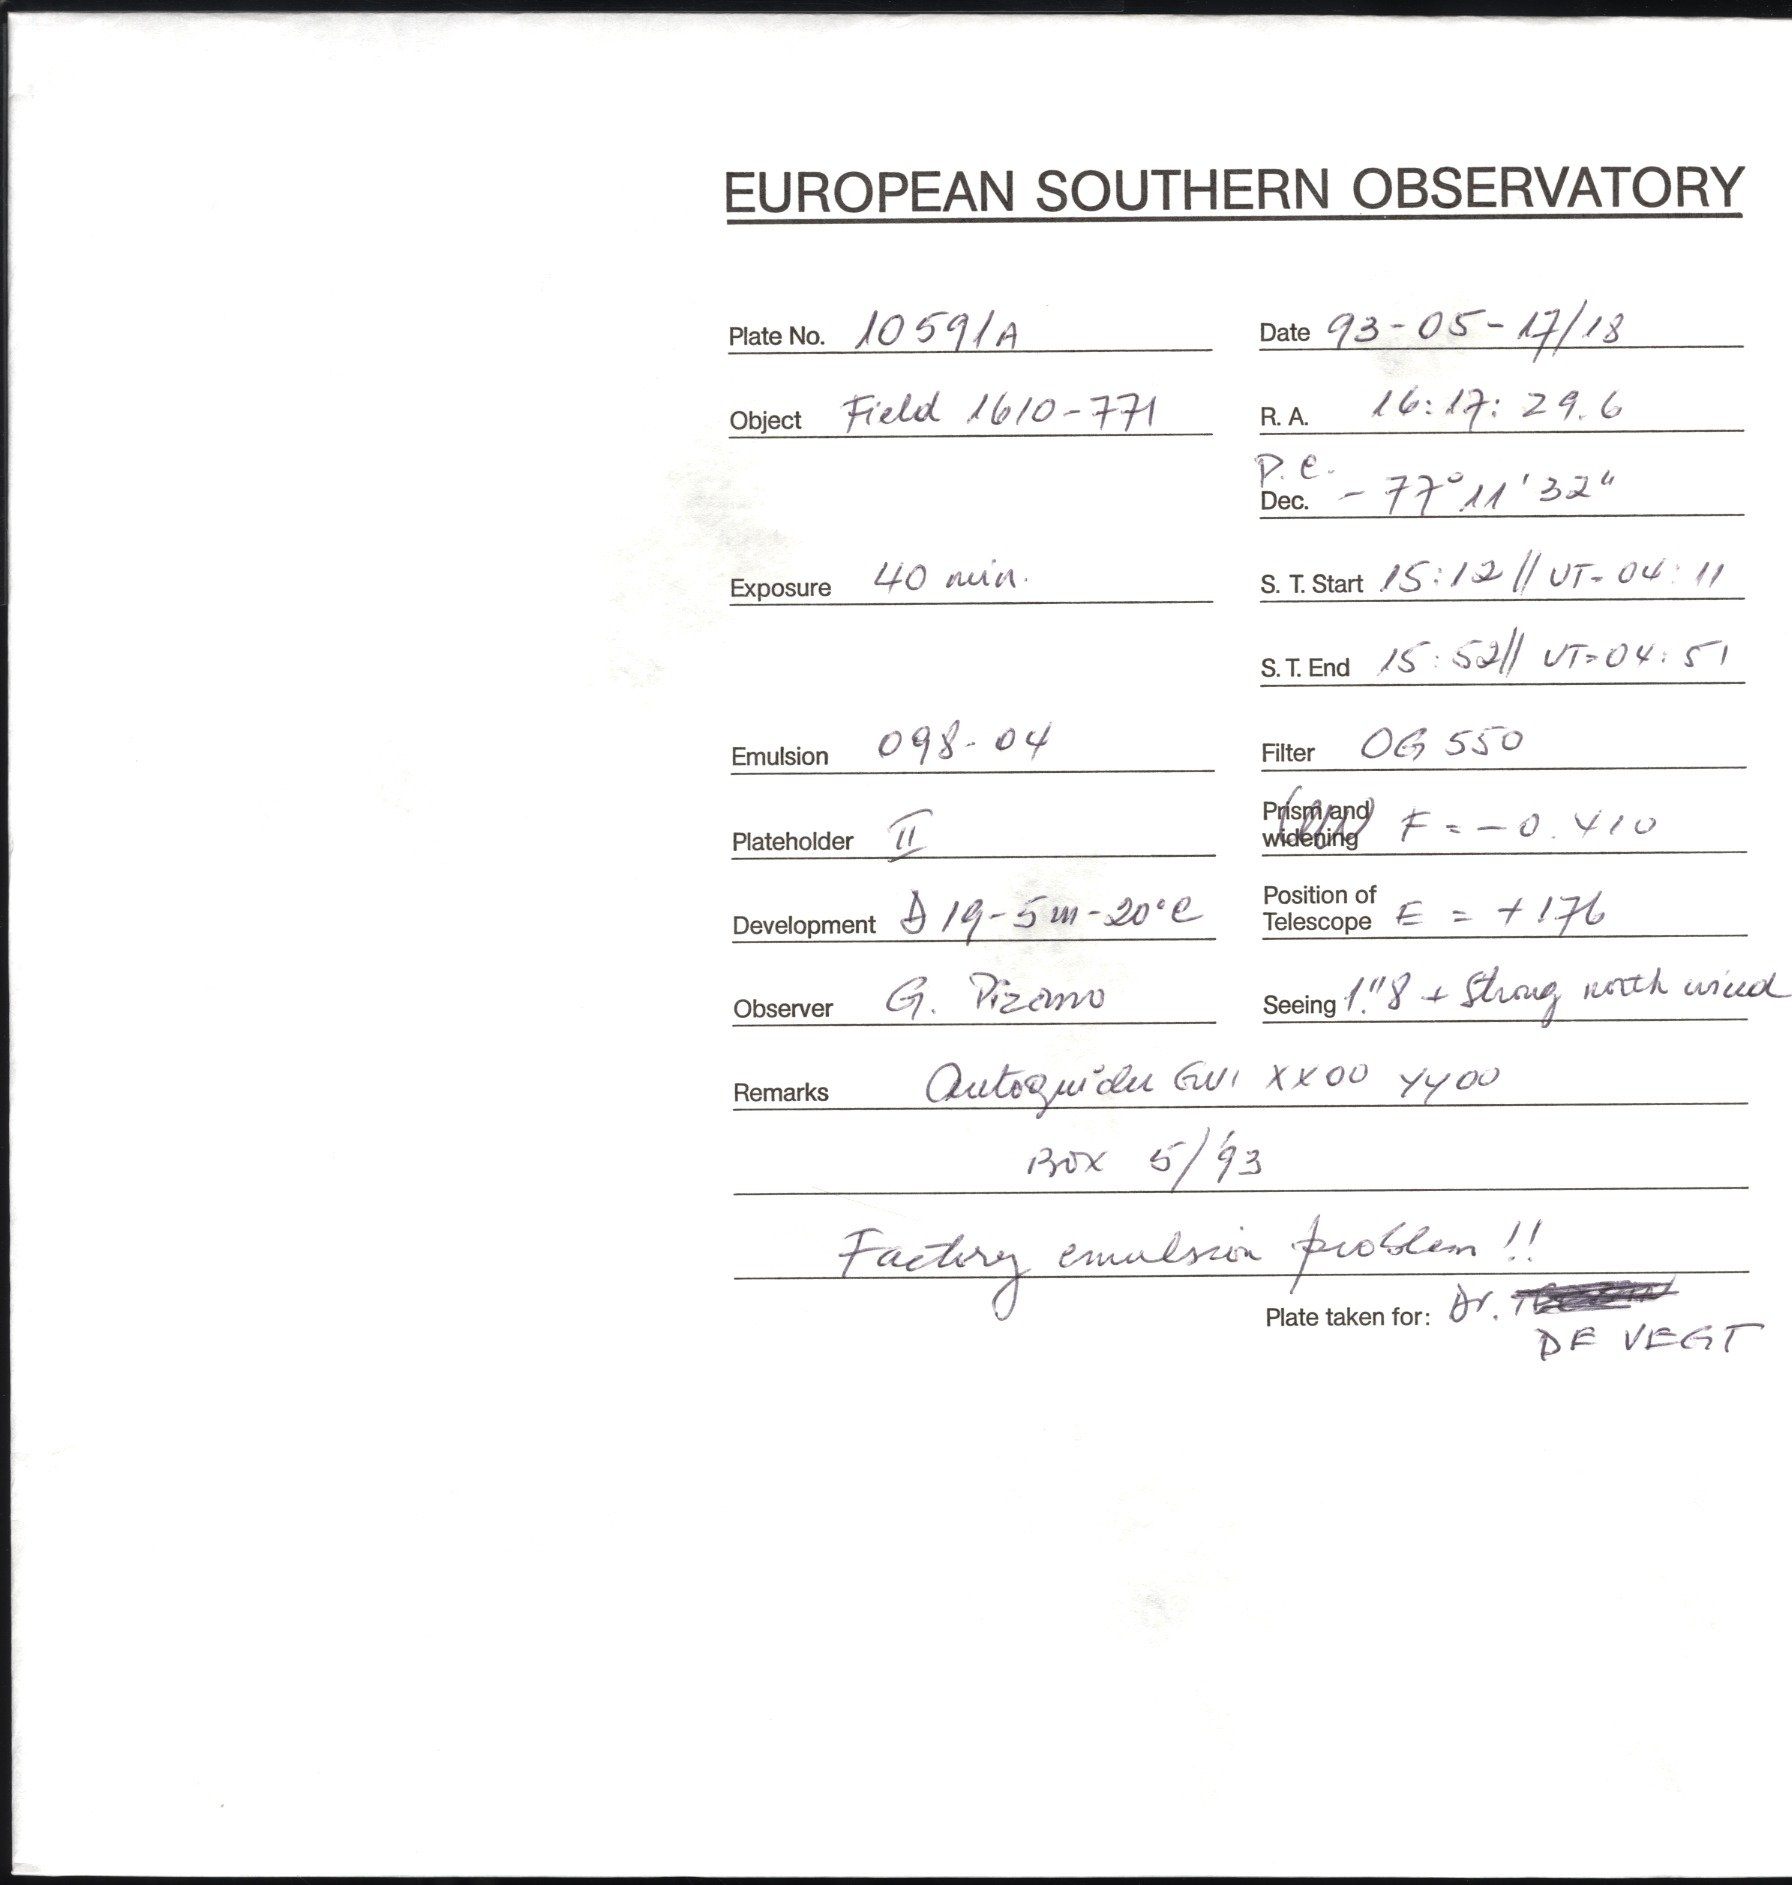 EUROPEAN SOUTHERN OBSERVATORY
Plate No. 10591A Date 93-05-17/18
Object Field 1610-771 R. A. 16:17:29.6
P. C.
Dec. - 77° 11' 32"
Exposure 40 min. S. T. Start 15:12 // UT= 04:11
S. T. End 15:52 // UT=04:51
Emulsion 098-04 Filter OG 550
Plateholder II Prism and widening F = -0.410
Development D19-5m-20°C Position of Telescope E = +176
Observer G. Pizarro Seeing 1."8 + Strong north wind
Remarks Autoguider XX00 YY00
Box 5/93
Factory emulsion problem !!
Plate taken for: Dr.
DE VEGT